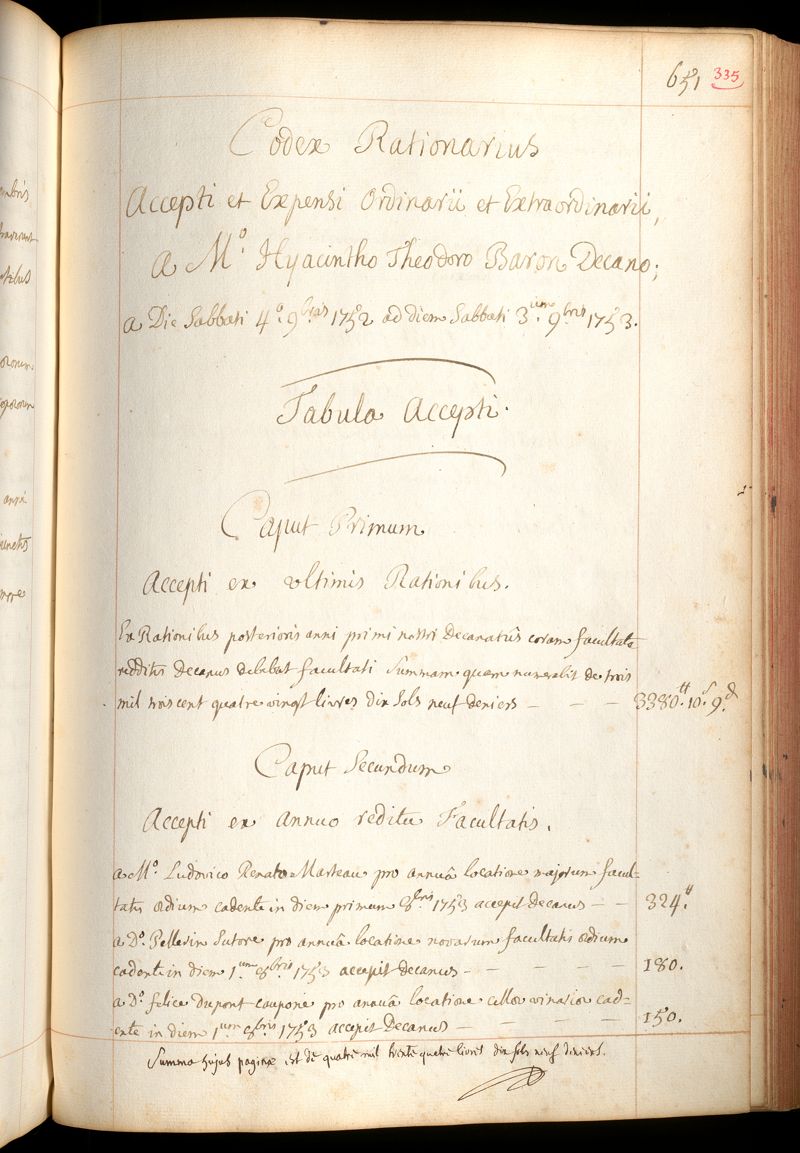 mbris
tebus
anni
more
651 335
Codex Rationarius
Accepti et Expensi Ordinarii et Extraordinarii,
a M.º Hyacintho Theodoro Baron Decano;
a Die Sabbati 4.º 9.bris 1752 ad diem Sabbati 3.um 9.bris 1753.
Tabula Accepti.
Caput Primum
Accepti ex ultimis Rationibus.
Ex Rationibus posterioris anni primi nostri Decanatûs coram facultate
redditis Decanus debebat facultati Summam quam numerabit de trois
mil trois cent quatre vingt livres dix sols neuf deniers — — — 3380.tt 10.s 9.d
Caput Secundum
Accepti ex annuo reditu Facultatis.
a M.º Ludovico Renato Marteau pro annuâ locatione majorum facul-
tatis ædium cadente in diem primum 8.bris 1753 accepit decanus — — 324.tt
a D.º Pellerin Sutore pro annuâ locatione novarum facultatis ædium
cadente in diem 1.um 8.bris 1753 accepit decanus — — — — — 180.
a D.º felice Dupont caupone pro annuâ locatione cellæ vinariæ cad-
ente in diem 1.um 8.bris 1753 accepit Decanus — — — — — 150.
Summa hujus paginæ est de quatre mil trente quatre livres dix sols neuf deniers.